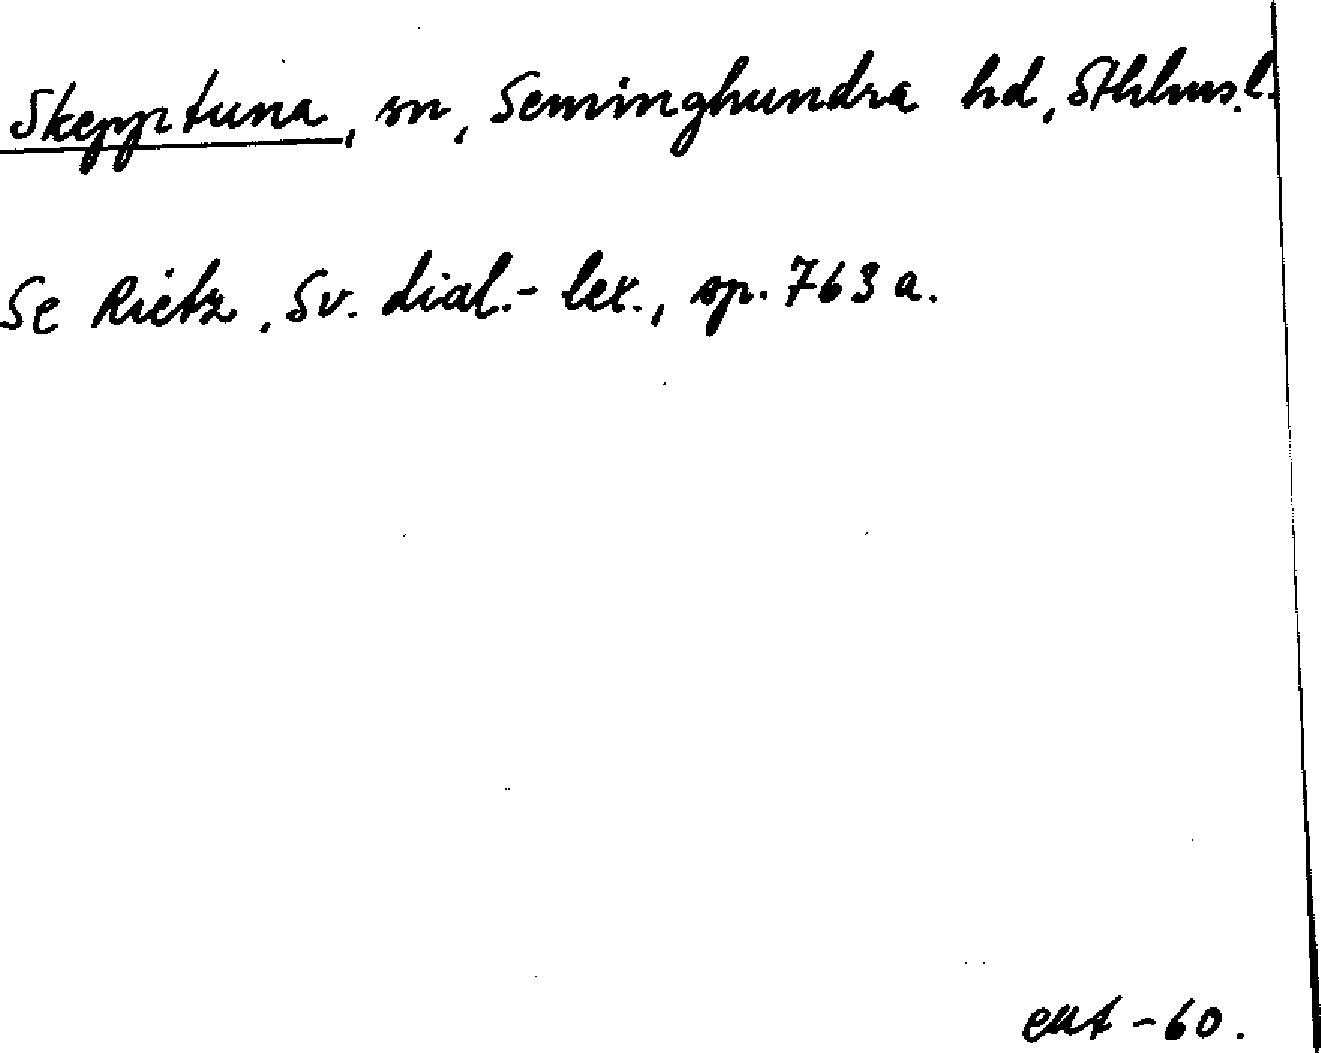 Skepptuna, sn, Seminghundra hd, Sthlms l.
Se Rietz, Sv. dial.-lex., sp. 763 a.
-60.